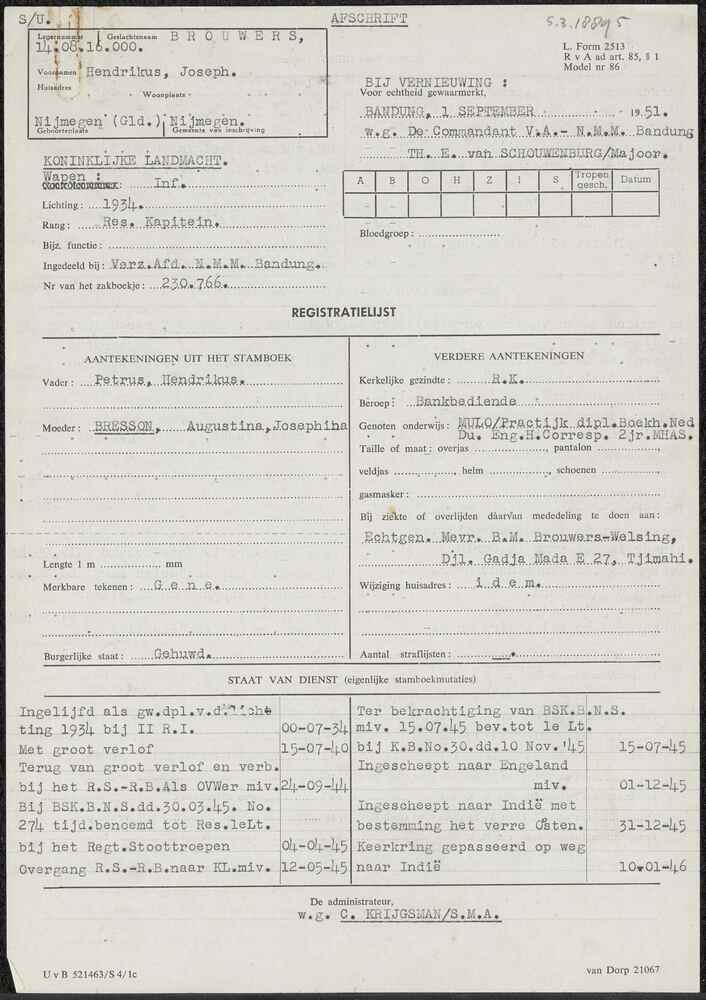 S/U.
AFSCHRIFT
Legernummer Geslachtsnaam BROUWERS,
14.08.16.000.
L. Form 2513
R v A ad art. 85, § 1
Model nr 86
Voornamen Hendrikus, Joseph.
Huisadres
Woonplaats
BIJ VERNIEUWING :
Voor echtheid gewaarmerkt,
Nijmegen (Gld.) Nijmegen.
Geboorteplaats Gemeente van inschrijving
BANDUNG, 1 SEPTEMBER 1951.
w.g. De Commandant V.A.- N.M.M. Bandung
TH. E. van SCHOUWENBURG/Majoor.
KONINKLIJKE LANDMACHT.
Wapen :
Inf.
Lichting : 1934.
Rang : Res. Kapitein.
Bijz. functie :
Ingedeeld bij : Verz.Afd. N.M.M. Bandung.
Nr van het zakboekje : 230.766.
A B O H Z I S Tropen gesch. Datum
Bloedgroep :
REGISTRATIELIJST
AANTEKENINGEN UIT HET STAMBOEK
Vader : Petrus, Hendrikus.
Moeder : BRESSON, Augustina,Josephina
Lengte 1 m mm
Merkbare tekenen : G e n e.
Burgerlijke staat : Gehuwd.
VERDERE AANTEKENINGEN
Kerkelijke gezindte : R.K.
Beroep : Bankbediende
Genoten onderwijs : MULO/Practijk dipl.Boekh.Ned
Du. Eng.H.Corresp. 2jr.MHAS.
Taille of maat : overjas , pantalon ,
veldjas , helm , schoenen
gasmasker :
Bij ziekte of overlijden daarvan mededeling te doen aan :
Echtgen. Mevr. B.M. Brouwers-Welsing,
Djl. Gadja Mada E 27, Tjimahi.
Wijziging huisadres : i d e m.
Aantal straflijsten :
STAAT VAN DIENST (eigenlijke stamboekmutaties)
Ingelijfd als gw.dpl.v.d. lich
ting 1934 bij II R.I. 00-07-34
Met groot verlof 15-07-40
Terug van groot verlof en verb.
bij het R.S.-R.B.Als OVWer miv. 24-09-44
Bij BSK.B.N.S.dd.30.03.45. No.
274 tijd.benoemd tot Res.1eLt.
bij het Regt.Stoottroepen 04-04-45
Overgang R.S.-R.B.naar KL.miv. 12-05-45
Ter bekrachtiging van BSK.B.N.S.
miv. 15.07.45 bev.tot 1e Lt.
bij K.B.No.30.dd.10 Nov.'45 15-07-45
Ingescheept naar Engeland
miv. 01-12-45
Ingescheept naar Indië met
bestemming het verre Osten. 31-12-45
Keerkring gepasseerd op weg
naar Indië 10-01-46
De administrateur,
w.g. C. KRIJGSMAN/S.M.A.
U v B 521463/S 4/1c
van Dorp 21067